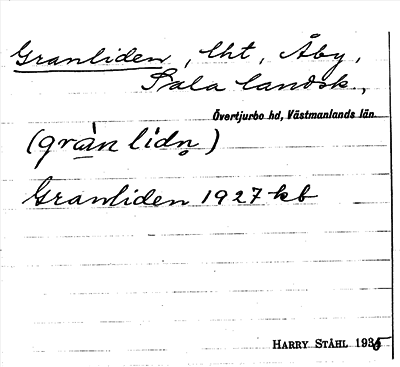 Granliden, lht, Åby,
Sala landsk.,
Övertjurbo hd, Västmanlands län.
(gràn lidn̥)
Granliden 1927 kb
HARRY STÅHL 1935